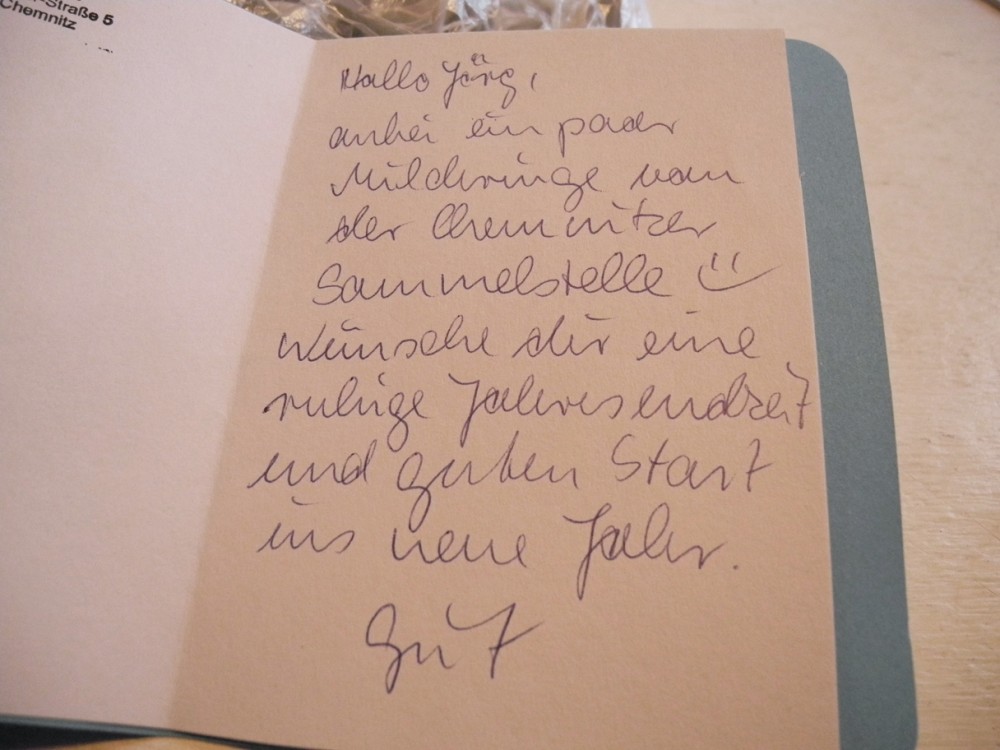 -Straße 5
Chemnitz
Hallo Jörg,
anbei ein paar
Milchringe von
der Chemnitzer
Sammelstelle ü
Wünsche dir eine
ruhige Jahresendzeit
und guten Start
ins neue Jahr.